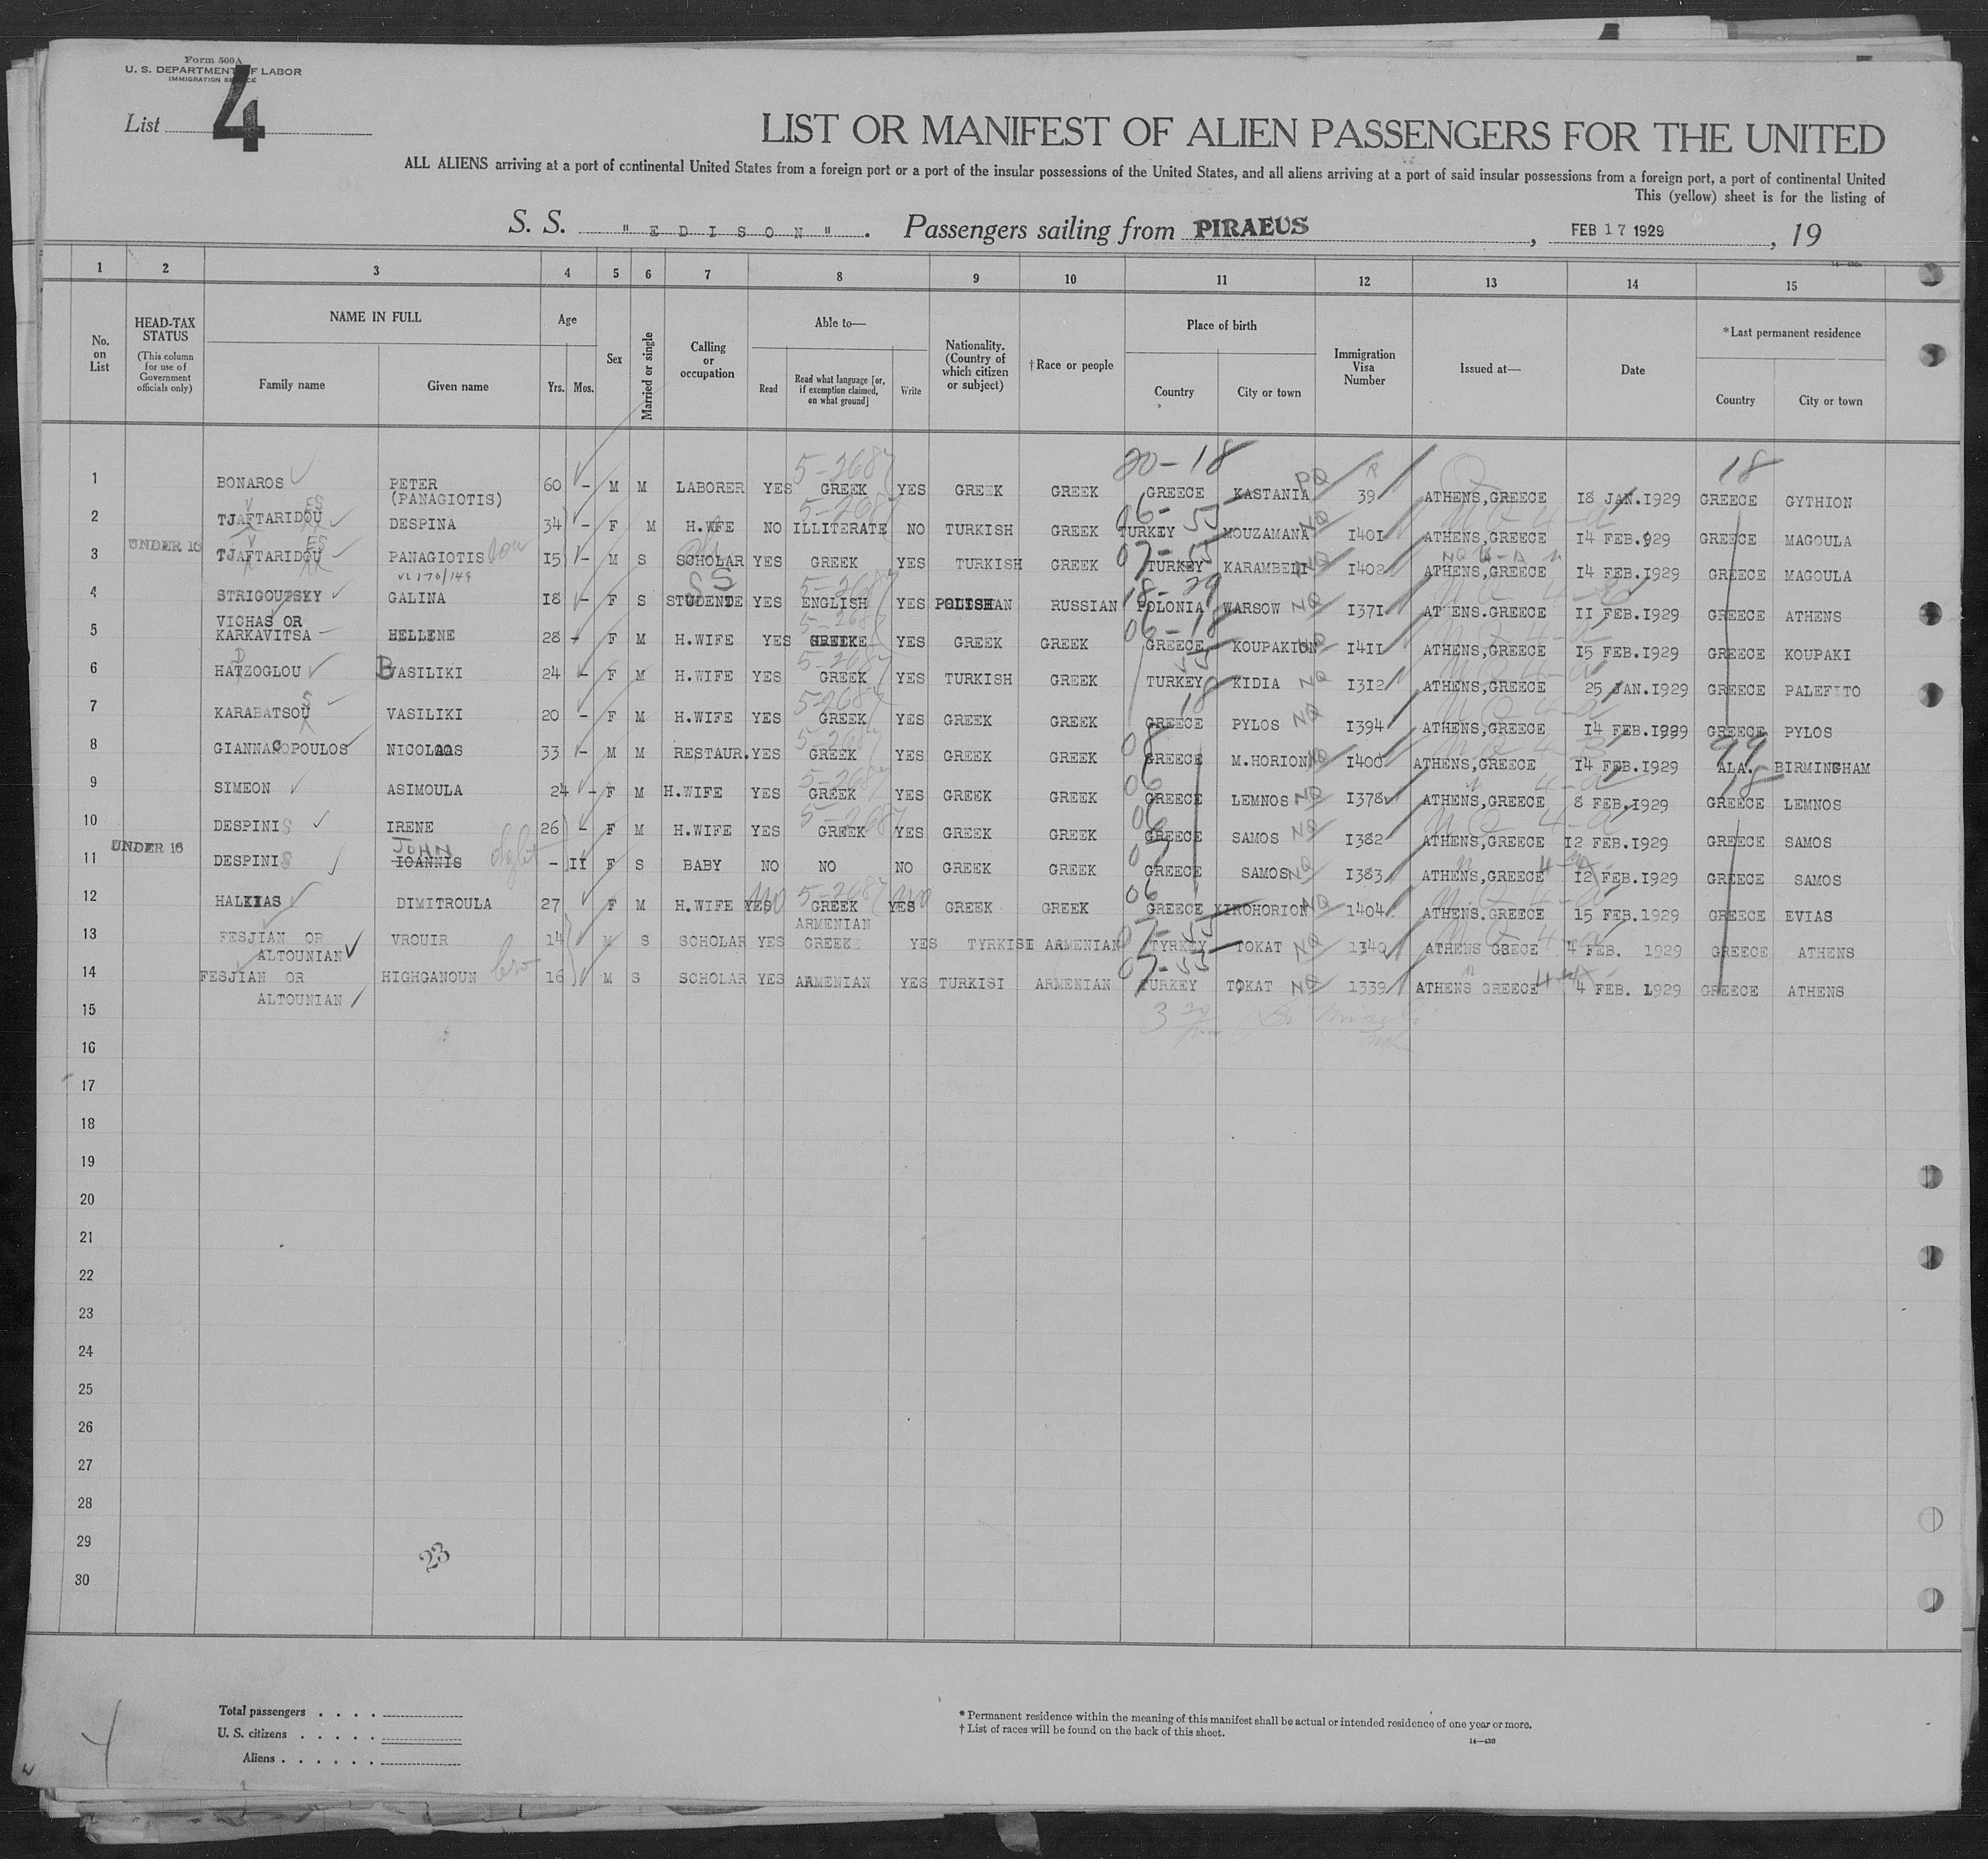 Form 500A
U. S. DEPARTMENT OF LABOR
IMMIGRATION SERVICE
List 4
LIST OR MANIFEST OF ALIEN PASSENGERS FOR THE UNITED
ALL ALIENS arriving at a port of continental United States from a foreign port or a port of the insular possessions of the United States, and all aliens arriving at a port of said insular possessions from a foreign port, a port of continental United
This (yellow) sheet is for the listing of
S. S. "EDISON". Passengers sailing from PIRAEUS, FEB 17 1929, 19
14—436
1 2 3 4 5 6 7 8 9 10 11 12 13 14 15
No. on List
HEAD-TAX STATUS (This column for use of Government officials only)
NAME IN FULL Family name Given name
Age Yrs. Mos.
Sex
Married or single
Calling or occupation
Able to— Read Read what language [or, if exemption claimed, on what ground] Write
Nationality. (Country of which citizen or subject)
†Race or people
Place of birth Country City or town
Immigration Visa Number
Issued at—
Date
*Last permanent residence Country City or town
20-18 18
5-2687
1 BONAROS PETER (PANAGIOTIS) 60 - M M LABORER YES GREEK YES GREEK GREEK GREECE KASTANIA PQ 39 ATHENS,GREECE 18 JAN.1929 GREECE GYTHION
V ES 5-2687 06- 55
2 TJAFTARIDOU DESPINA 34 - F M H.WFE NO ILLITERATE NO TURKISH GREEK TURKEY MOUZAMANA NQ 1401 ATHENS,GREECE 14 FEB.929 GREECE MAGOULA
UNDER 16
V ES 07-55
3 TJAFTARIDOU PANAGIOTIS son 15 - M S SCHOLAR YES GREEK YES TURKISH GREEK TURKEY KARAMBELI NQ 1402 ATHENS,GREECE 14 FEB.1929 GREECE MAGOULA
VL 170/149
SS 5-2687 18-29
4 STRIGOUTSKY GALINA 18 - F S STUDENT YES ENGLISH YES POLISH RUSSIAN POLONIA WARSOW NQ 1371 ATHENS.GREECE 11 FEB.1929 GREECE ATHENS
5-2687 06-18
5 VICHAS OR KARKAVITSA HELLENE 28 - F M H.WIFE YES GREEK YES GREEK GREEK GREECE KOUPAKION NQ 1411 ATHENS,GREECE 15 FEB.1929 GREECE KOUPAKI
D 5-2687 55
6 HATZOGLOU BVASILIKI 24 - F M H.WIFE YES GREEK YES TURKISH GREEK TURKEY KIDIA NQ 1312 ATHENS,GREECE 25 JAN.1929 GREECE PALEFITO
S 5-2687 18
7 KARABATSOU VASILIKI 20 - F M H.WIFE YES GREEK YES GREEK GREEK GREECE PYLOS NQ 1394 ATHENS,GREECE 14 FEB.1929 GREECE PYLOS
5-2687 08 99
8 GIANNACOPOULOS NICOLAOS 33 - M M RESTAUR. YES GREEK YES GREEK GREEK GREECE M.HORION NQ 1400 ATHENS,GREECE 14 FEB.1929 ALA. BIRMINGHAM
5-2687 06 18
9 SIMEON ASIMOULA 24 - F M H.WIFE YES GREEK YES GREEK GREEK GREECE LEMNOS NQ 1378 ATHENS,GREECE 8 FEB.1929 GREECE LEMNOS
5-2687 06
10 DESPINIS IRENE 26 - F M H.WIFE YES GREEK YES GREEK GREEK GREECE SAMOS NQ 1382 ATHENS,GREECE 12 FEB.1929 GREECE SAMOS
UNDER 16
JOHN
11 DESPINIS IOANNIS - 11 F S BABY NO NO NO GREEK GREEK GREECE SAMOS NQ 1383 ATHENS,GREECE 12 FEB.1929 GREECE SAMOS
5-2687 06
12 HALKIAS DIMITROULA 27 F M H.WIFE YES NO GREEK YES NO GREEK GREEK GREECE XIROHORION NQ 1404 ATHENS.GREECE 15 FEB.1929 GREECE EVIAS
07-55
13 FESJIAN OR ALTOUNIAN VROUIR 14 M S SCHOLAR YES ARMENIAN GREEK YES TYRKISI ARMENIAN TYRKEY TOKAT NQ 1340 ATHENS GRECE 4 FEB. 1929 GREECE ATHENS
07-55
14 FESJIAN OR ALTOUNIAN HIGHGANOUN bro 16 M S SCHOLAR YES ARMENIAN YES TURKISI ARMENIAN TURKEY TOKAT NQ 1339 ATHENS GREECE 4 FEB. 1929 GREECE ATHENS
15
16
17
18
19
20
21
22
23
24
25
26
27
28
29
30
23
Total passengers . . . .
U. S. citizens . . . . .
Aliens . . . . . .
* Permanent residence within the meaning of this manifest shall be actual or intended residence of one year or more.
† List of races will be found on the back of this sheet.
14—436